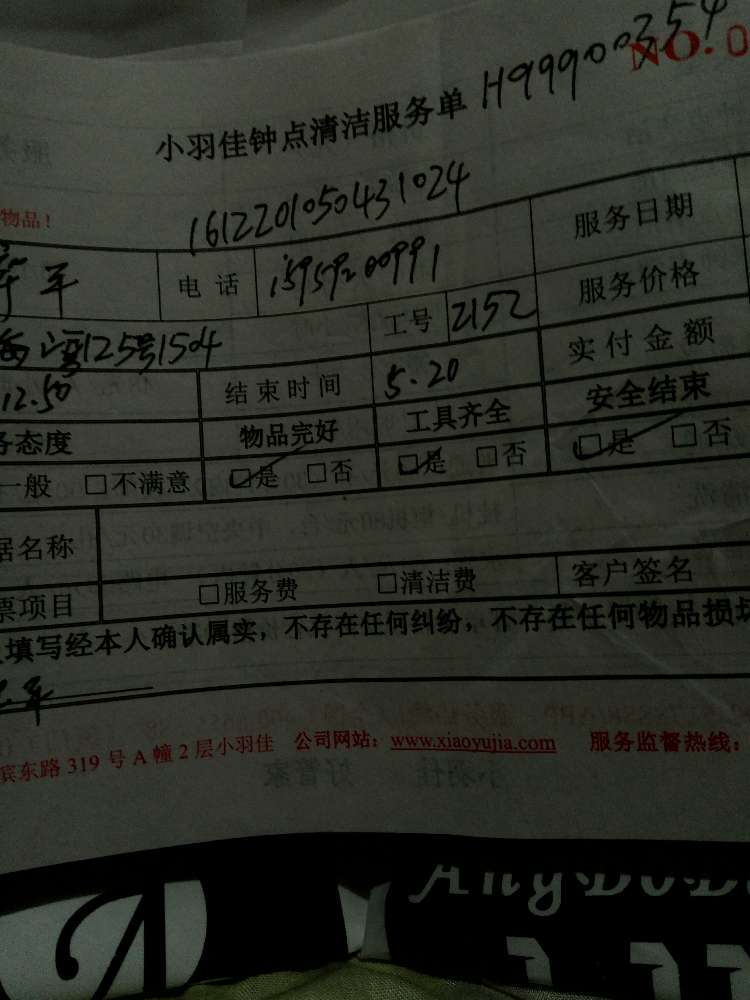 NO.0
小羽佳钟点清洁服务单 H999900354
161220105043 1024
物品！
平 电话 15959200991 服务日期
湾125号1504 工号 2152 服务价格
12.50 结束时间 5.20 实付金额
务态度 物品完好 工具齐全 安全结束
一般 □不满意 □是 □否 □是 □否 □是 □否
据名称
票项目 □服务费 □清洁费 客户签名
填写经本人确认属实，不存在任何纠纷，不存在任何物品损坏
滨东路 319 号 A 幢 2 层小羽佳 公司网站：www.xiaoyujia.com 服务监督热线：